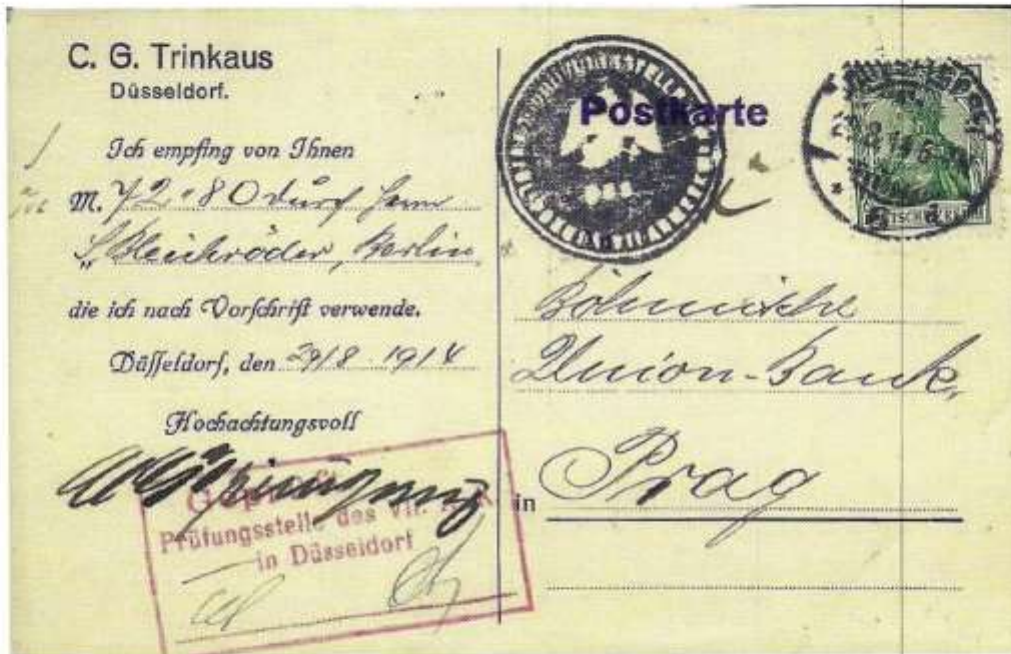 C. G. Trinkaus
Düsseldorf.
Ich empfing von Ihnen
M. 72"80 durch Herrn
S. Bleichröder, Berlin
die ich nach Vorschrift verwende.
Düsseldorf, den 29/8 1914
Hochachtungsvoll
Prüfungsstelle des VII.
in Düsseldorf
Postkarte
Böhmische
Union-Bank,
in Prag